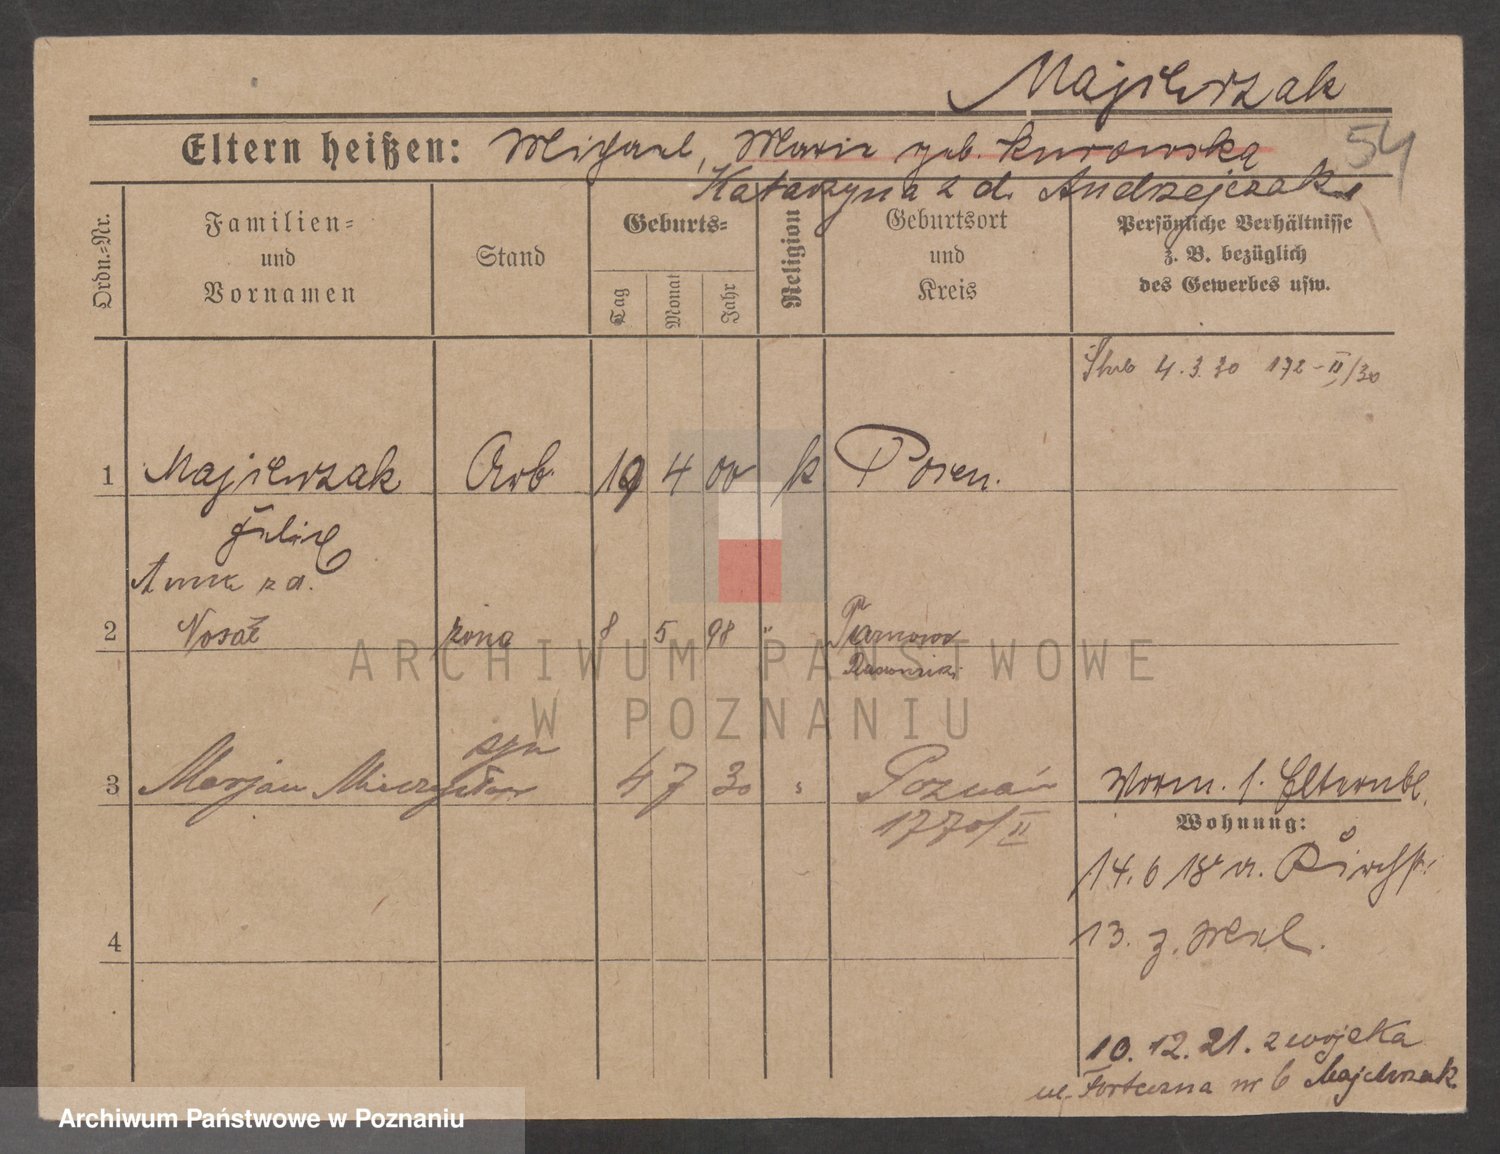 Majcherzak
54
Eltern heißen: Michael, Marie geb. Kurowska
Katarzyna z d. Andrzejczak
Ordn.-Nr.
Familien-
und
Vornamen
Stand
Geburts-
Tag
Monat
Jahr
Religion
Geburtsort
und
Kreis
Persönliche Verhältnisse
z. B. bezüglich
des Gewerbes usw.
Ślub 4.3.30 172-II/30
1 Majcherzak Arb. 19 4 00 k Posen.
Felix
Anna z d.
2 Nosal żona 8 5 98 " Tarnowo
syn
3 Marjan Mieczysław 4 7 30 Poznań
1770/II
Vorm. s. Elternbl.
Wohnung:
14. 6 18 v.
4
13. z. Mil.
10. 12. 21. z wojska
ul. Forteczna nr 6 Majcherzak
ARCHIWUM PAŃSTWOWE
W POZNANIU
Archiwum Państwowe w Poznaniu